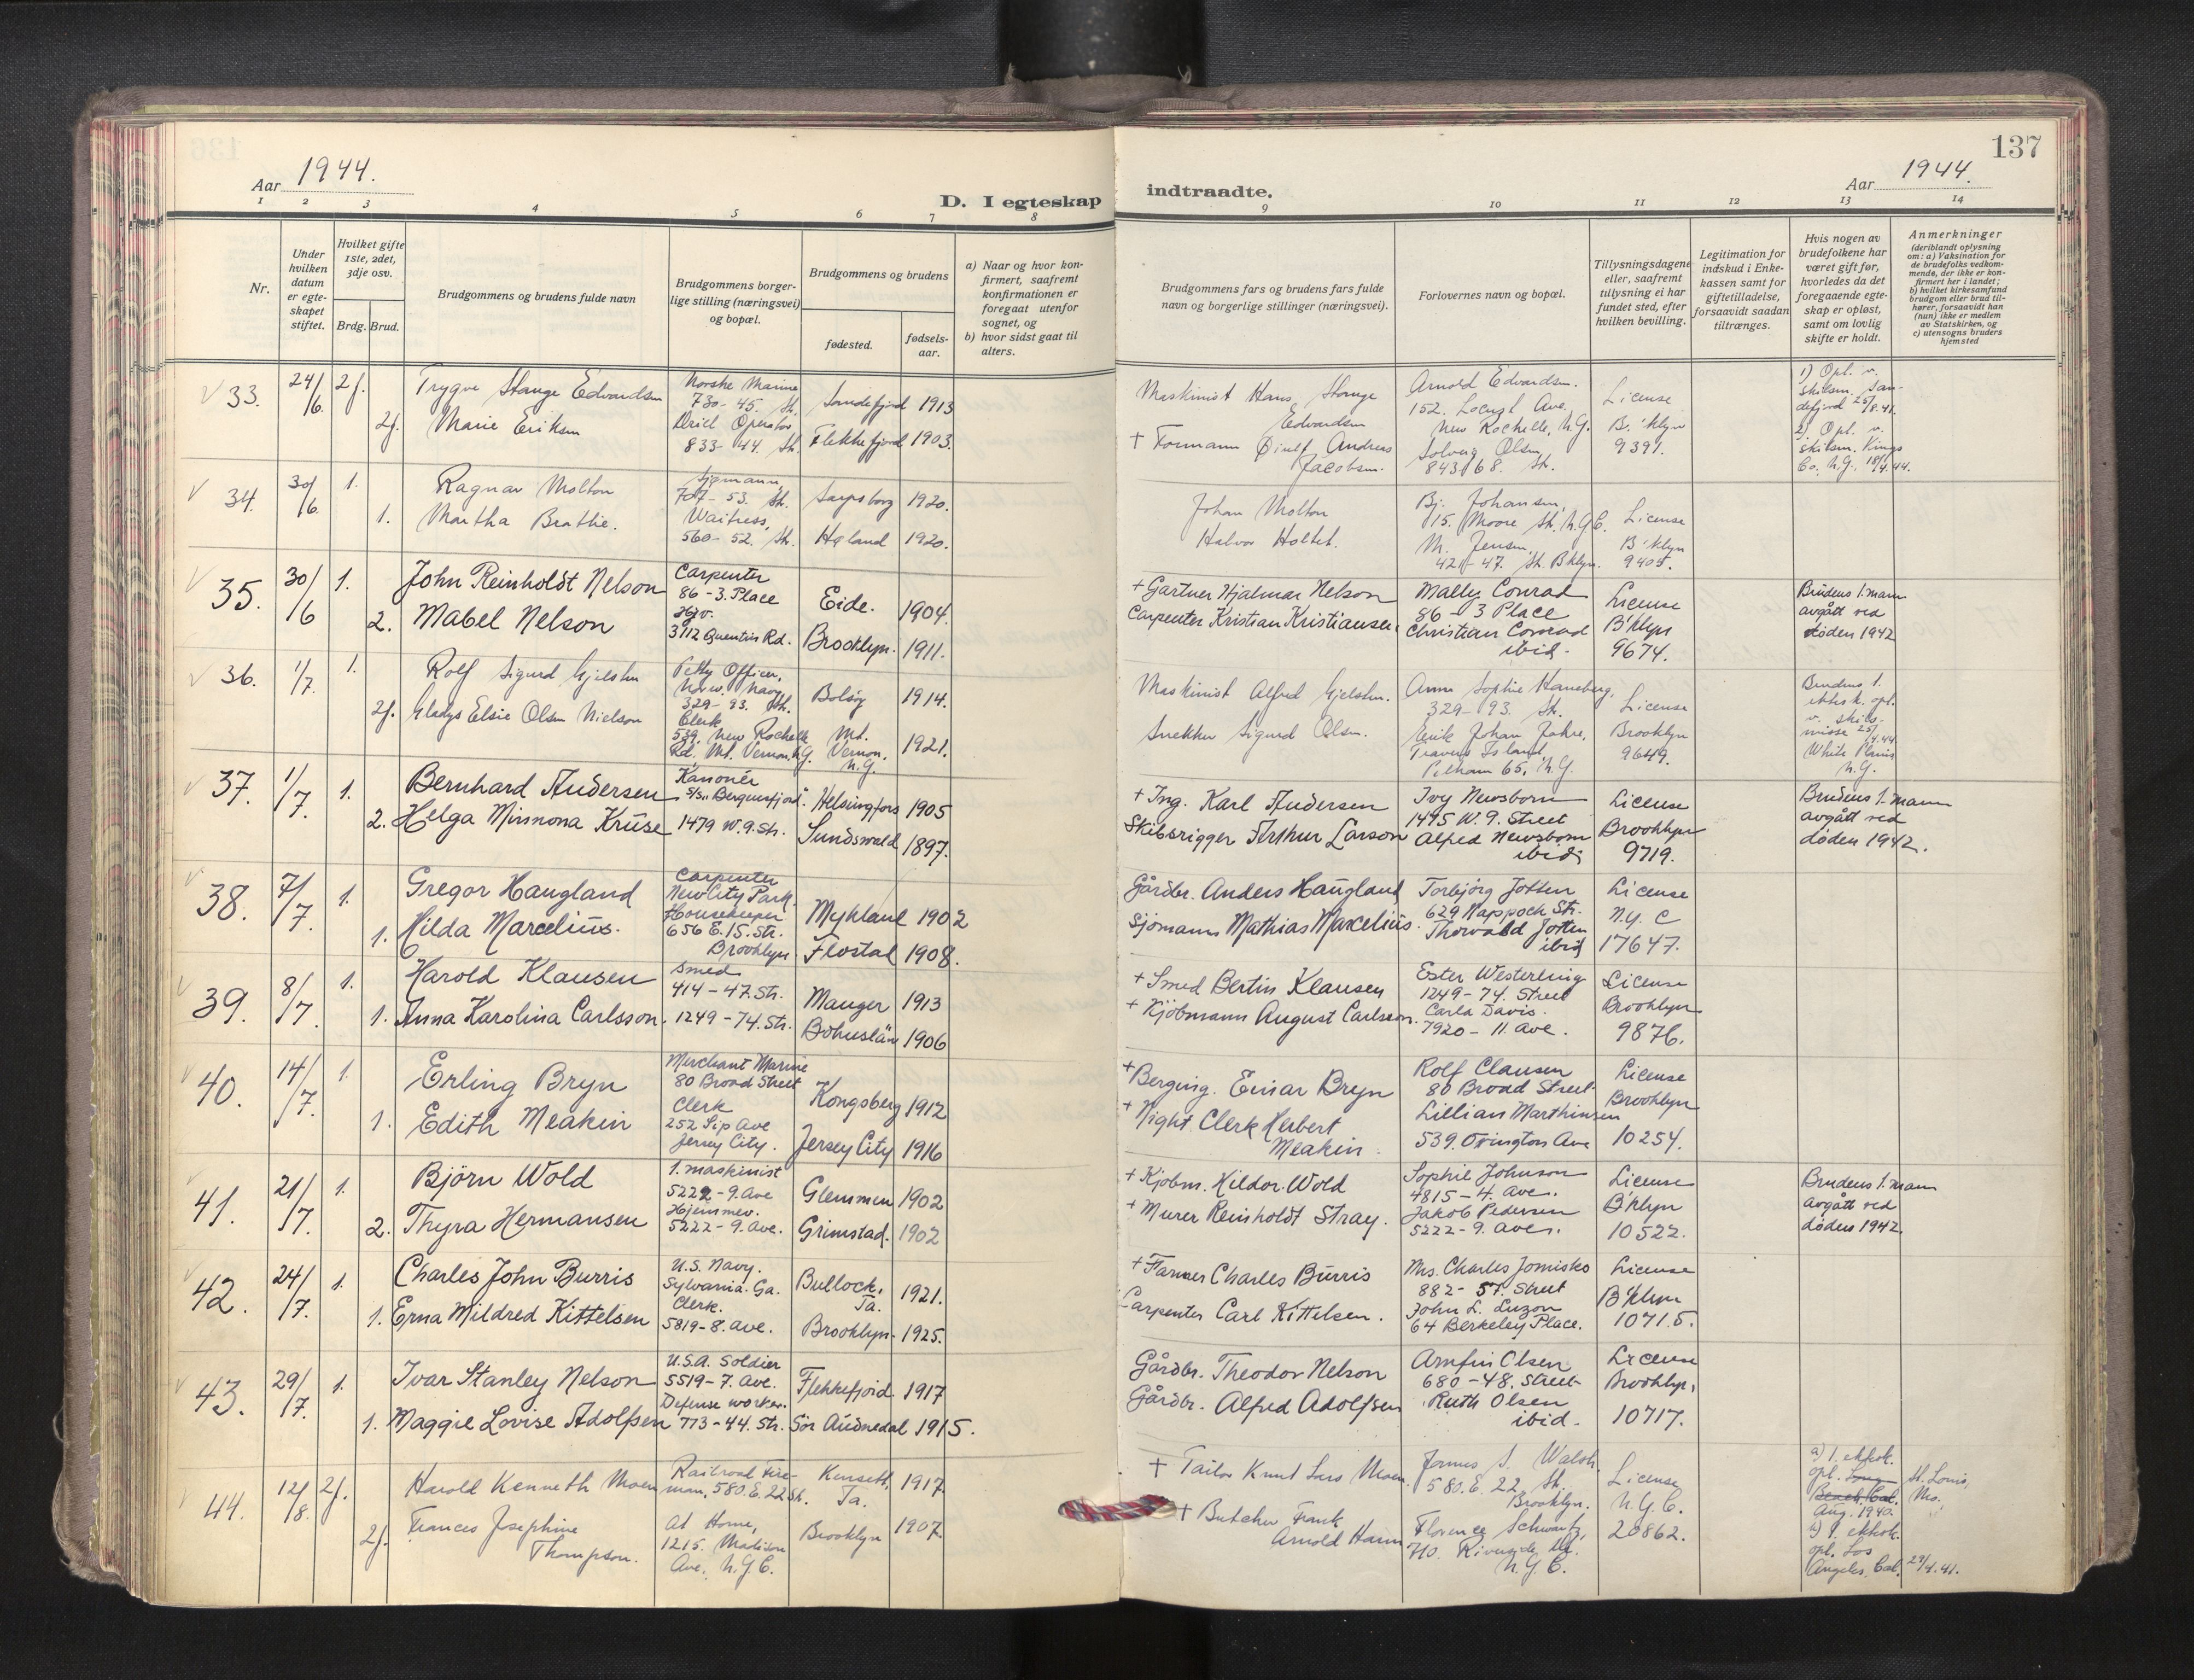 137
Aar 1944.
D. I egteskap
indtraadte.
Aar 1944.
1 2 3 4 5 6 7 8 9 10 11 12 13 14
Nr.
Under
hvilken
datum
er egte-
skapet
stiftet.
Hvilket gifte
1ste, 2det,
3dje osv.
Brdg. Brud.
Brudgommens og brudens fulde navn
Brudgommens borger-
lige stilling (næringsvei)
og bopæl.
Brudgommens og brudens
fødested.
fødsels-
aar.
a) Naar og hvor kon-
firmert, saafremt
konfirmationen er
foregaat utenfor
sognet, og
b) hvor sidst gaat til
alters.
Brudgommens fars og brudens fars fulde
navn og borgerlige stillinger (næringsvei).
Forlovernes navn og bopæl.
Tillysningsdagene
eller, saafremt
tillysning ei har
fundet sted, efter
hvilken bevilling.
Legitimation for
indskud i Enke-
kassen samt for
giftetilladelse,
forsaavidt saadan
tiltrænges.
Hvis nogen av
brudefolkene har
været gift før,
hvorledes da det
foregaaende egte-
skap er opløst,
samt om lovlig
skifte er holdt.
Anmerkninger
(deriblandt oplysning
om: a) Vaksination for
de brudefolks vedkom-
mende, der ikke er kon-
firmert her i landet;
b) hvilket kirkesamfund
brudgom eller brud til-
hører, forsaavidt han
(hun) ikke er medlem
av Statskirken, og
c) utensogns bruders
hjemsted
33.
24/6.
2f.
2f.
Trygve Stange Edvardsen
Marie Eriksen
Norske Marine
730-45. St.
Drill Operator
833-44. St.
Sandefjord 1913
Flekkefjord 1903.
Maskinist Hans Stange
Edvardsen
+ Formann Andreas
Jacobsen.
Arnold Edvardsen.
152. Locust Ave.
New Rochelle, N.Y.
Solveig Olsen
843-68. St.
License
B.'klyn
9391.
1) Opl. v.
skilsm. San-
defjord 25/8.41.
2) Opl. v.
skilsm. Kings
Co. N.Y. 18/4.44.
34.
30/6.
1.
1.
Ragnar Molton
Martha Brattlie.
Sjømann,
707-53. St.
Waitress,
560-52. St.
Sarpsborg 1920.
Høland 1920.
Johan Molton
Halvor Holtet.
Bj. Johansen,
15. Moore St. N.Y.C.
M. Jensen,
421-47. St. Bklyn.
License
B'klyn
9405.
35.
30/6
1.
2.
John Reinholdt Nelson
Mabel Nelson
Carpenter
86-3. Place
Hgv.
3112 Quentin Rd.
Eide. 1904.
Brooklyn. 1911.
+ Gartner Hjalmar Nelson
Carpenter Kristian Kristiansen.
Mally Conrad
86-3 Place
Christian Conrad
ibid.
License
B'klyn
9674.
Brudens 1. mann
avgått ved
døden 1942
36.
1/7.
1.
2f.
Rolf Sigurd Gjelsten
Gladys Elsie Olsen Nielson
Petty Officer,
Norw. Navy
329-93. St.
Clerk
539, New Rochelle
Rd., Mt. Vernon, N.Y.
Bolsøy 1914.
Mt.
Vernon, 1921.
N.Y.
Maskinist Alfred Gjelsten.
Snekker Sigurd Olsen.
Anna Sophie Harneberg,
329-93. St.
Erik Johan Jahre,
Travers Island,
Pelham 65, N.Y.
License
Brooklyn
9649.
Brudens 1.
ektesk. opl.
v. skils-
misse 25/4.44
White Plains
N.Y.
37.
1/7.
1.
2.
Bernhard Andersen
Helga Minmona Krüse
Kanonér
S/s. "Bergensfjord"
1479 W. 9. Str.
Helsingfors 1905
Sundswald 1897.
+ Ing. Karl Andersen
Skibsrigger Arthur Larson
Ivy Newsborn
1475 W. 9. Street
Alfred Newsborn
ibid.
License
Brooklyn
9719.
Brudens 1. mann
avgått ved
døden 1942.
38.
7/7.
1.
1.
Gregor Haugland
Hilda Marcelius.
Carpenter
New City Park
Housekeeper
656 E. 15. Str.
Brooklyn
Mykland 1902
Flostad 1908.
Gårdbr. Anders Haugland
Sjømann Mathias Marcelius.
Torbjørg Jotten
629 Nappock Str.
Thorvald Jotten
ibid
License
N.Y. C
17647.
39.
8/7.
1.
1.
Harold Klausen
Anna Karolina Carlsson.
Smed
414-47. Str.
1249-74. Str.
Manger 1913
Bohuslän 1906
+ Smed Bertin Klausen
+ Kjöbmann August Carlsson.
Ester Westerling
1249-74. Street
Carla Davis.
7920-11. Ave.
License
Brooklyn
9876.
40.
14/7.
1.
1.
Erling Bryn
Edith Meakin
Merchant Marine
80 Broad Street
Clerk
252 Sip Ave
Jersey City.
Kongsberg 1912
Jersey City 1916
+ Berging. Einar Bryn
+ Night Clerk Herbert
Meakin.
Rolf Clausen
80 Broad Street
Lillian Marthinsen
539. Ovington Ave
License
Brooklyn
10254.
41.
21/7.
1.
2.
Björn Wold
Thyra Hermansen
1. maskinist
5222-9. Ave
Hjemmev.
5222-9. Ave.
Glemmen 1902
Grimstad. 1902
+ Kjøbm. Hildor Wold
+ Murer Reinholdt Stray.
Sophie Johnson
4815-4. Ave.
Jakob Pedersen
5222-9. Ave.
License
B'klyn
10522.
Brudens 1. mann
avgått ved
døden 1942.
42.
24/7.
1.
1.
Charles John Burris
Erna Mildred Kittelsen
U.S. Navy.
Sylvania. Ga.
Clerk.
5819-8. Ave.
Bullock, 1921.
Brooklyn. 1925.
+ Farmer Charles Burris
Carpenter Carl Kittelsen.
Mrs. Charles Jomisko
882-57. Street
John L. Luzon
64 Berkeley Place.
License
B'klyn
10715.
43.
29/7.
1.
1.
Ivar Stanley Nelson
Maggie Lovise Adolfsen
U.S.A. Soldier
5519-7. Ave.
Defense worker.
773-44. Str.
Flekkefjord 1917
Sør Audnedal 1915.
Gårdbr. Theodor Nelson
Gårdbr. Alfred Adolfsen
Arnfin Olsen
680-48. Street
Ruth Olsen
ibid.
License
Brooklyn,
10717.
44.
12/8.
2f.
2f.
Harold Kenneth Moen
Frances Josephine
Thompson.
Railroad Fire-
man, 580. E. 22 St.
At Home,
1215. Madison
Ave. N.Y.C.
Kensett, 1917.
Ia.
Brooklyn 1907.
+ Tailor Knut Lars Moen.
+ Butcher Frank
Arnold Hamm
James S. Walsh
580. E. 22. St.
Brooklyn.
Florence Schwartz,
710. Riverside Dr.
N.Y.C.
License
N.Y.C.
20862.
a) 1. ektsk.
opl. Long
Beach, Cal. St. Louis, Mo.
Aug. 1940.
b) 1. ektsk.
opl. Los
Angeles, Cal. 29/4.41.